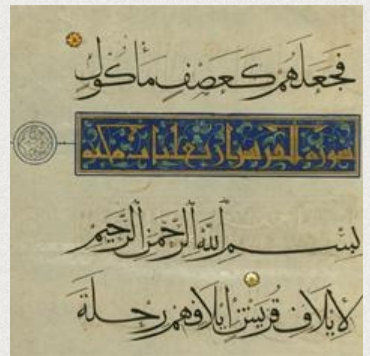 فَجَعَلَهُمْ كَعَصْفٍ مَأْكُولٍ
سورة القريش اربع ايات مكية
بِسْمِ اللَّهِ الرَّحْمَٰنِ الرَّحِيمِ
لِإِيلَافِ قُرَيْشٍ إِيلَافِهِمْ رِحْلَةَ